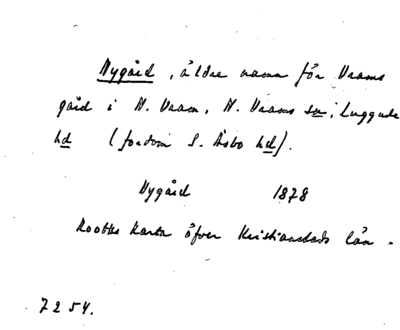 Nygård, äldre namn för Vrams
gård i N. Vram, N. Vrams sn, Luggude
hd (fordom S. Åsbo hd).
Nygård 1878
karta öfver Kristianstads län.
7254.